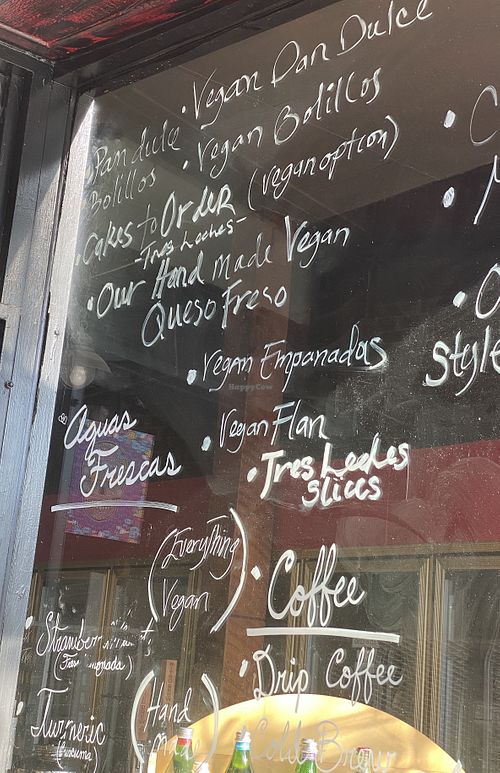 • Vegan Pan Dulce
• Pan dulce
• Vegan Bolillos
Bolillos
• Cakes to Order (vegan option)
- Tres Leches -
• Our Hand made Vegan
Queso Freso
• Vegan Empanadas
• Vegan Flan
• Tres Leches
slices
Style
Aguas
Frescas
(Everything
Vegan)
• Coffee
• Drip Coffee
Cold Brew
• Turmeric
(Hand
made)
HappyCow